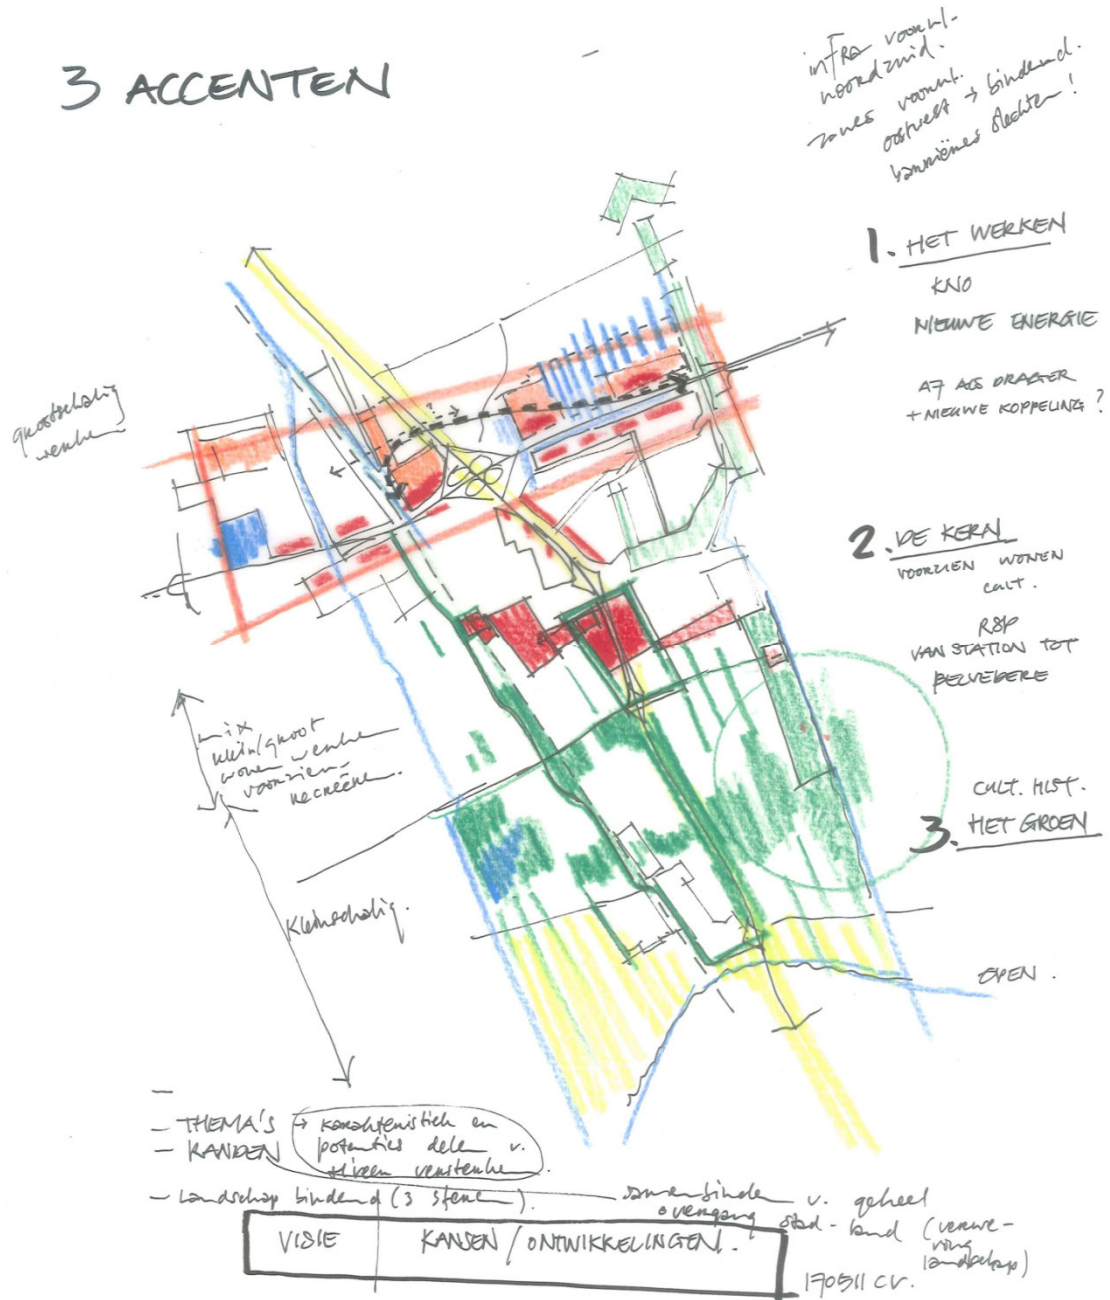 3 ACCENTEN
infra voornl-
noordzuid.
zones voornl.
oostwest → bindend.
barrières slechten!
1. HET WERKEN
KNO
NIEUWE ENERGIE
A7 ALS DRAGER
+ NIEUWE KOPPELING ?
grootschalig
werken
2. DE KERN
VOORZIEN WONEN
CULT.
RSP
VAN STATION TOT
BELVEDERE
mix
klein/groot
wonen werken
voorzien-
recreëren.
CULT. HIST.
3. HET GROEN
Kleinschalig.
OPEN.
- THEMA'S → karakteristiek en
- RANDEN potenties delen v.
versterken.
- Landschap bindend (3 sferen). samenbinden v. geheel
overgang stad-land (verwe-
ving
landschap)
VISIE KANSEN / ONTWIKKELINGEN.
170511 CV.